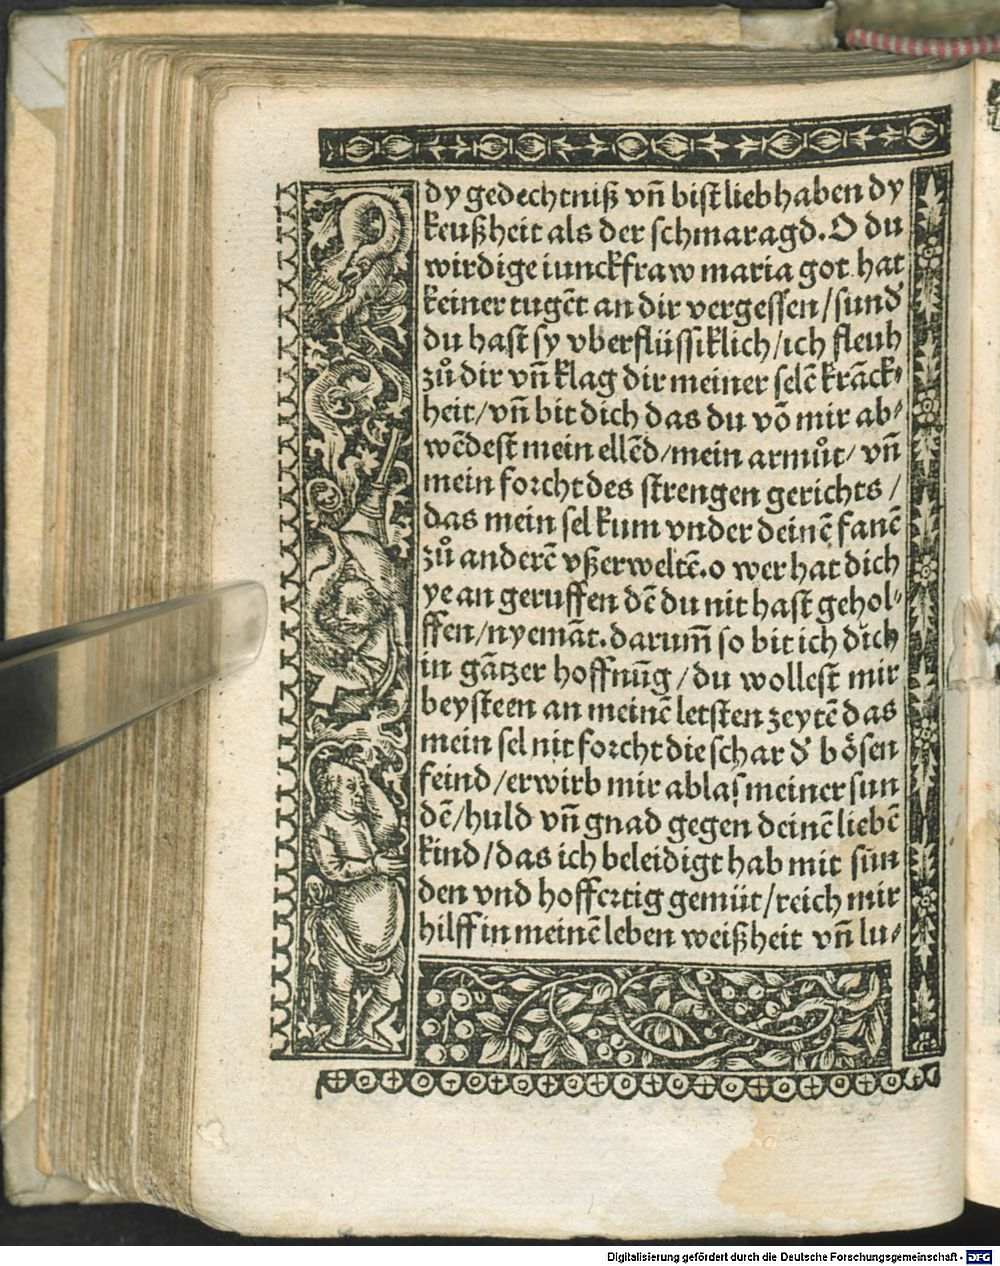 dy gedechtniß vn̄ bist liebhaben dy
keußheit als der schmaragd. O du
wirdige iunckfraw maria got hat
keiner tugēt an dir vergessen/sund̾
du hast sy vberflüssiklich/ich fleuh
zů dir vn̄ klag dir meiner selē krāck⸗
heit/vn̄ bit dich das du vō mir ab⸗
wēdest mein ellēd/mein armůt/ vn̄
mein forcht des strengen gerichts /
das mein sel kum vnder deinē fanē
zů anderē vßerweltē.o wer hat dich
ye an geruffen dē du nit hast gehol⸗
ffen/nyemāt.darum̄ so bit ich dich
in gātzer hoffnūg /du wollest mir
beysteen an meinē letsten zeytē das
mein sel nit forcht die schar d̾ bösen
feind/erwirb mir ablas meiner sun
dē/huld vn̄ gnad gegen deinē liebē
kind/das ich beleidigt hab mit sün
den vnd hoffertig gemüt/reich mir
hilff in meinē leben weißheit vn̄ lu⸗
Digitalisierung gefördert durch die Deutsche Forschungsgemeinschaft - DFG